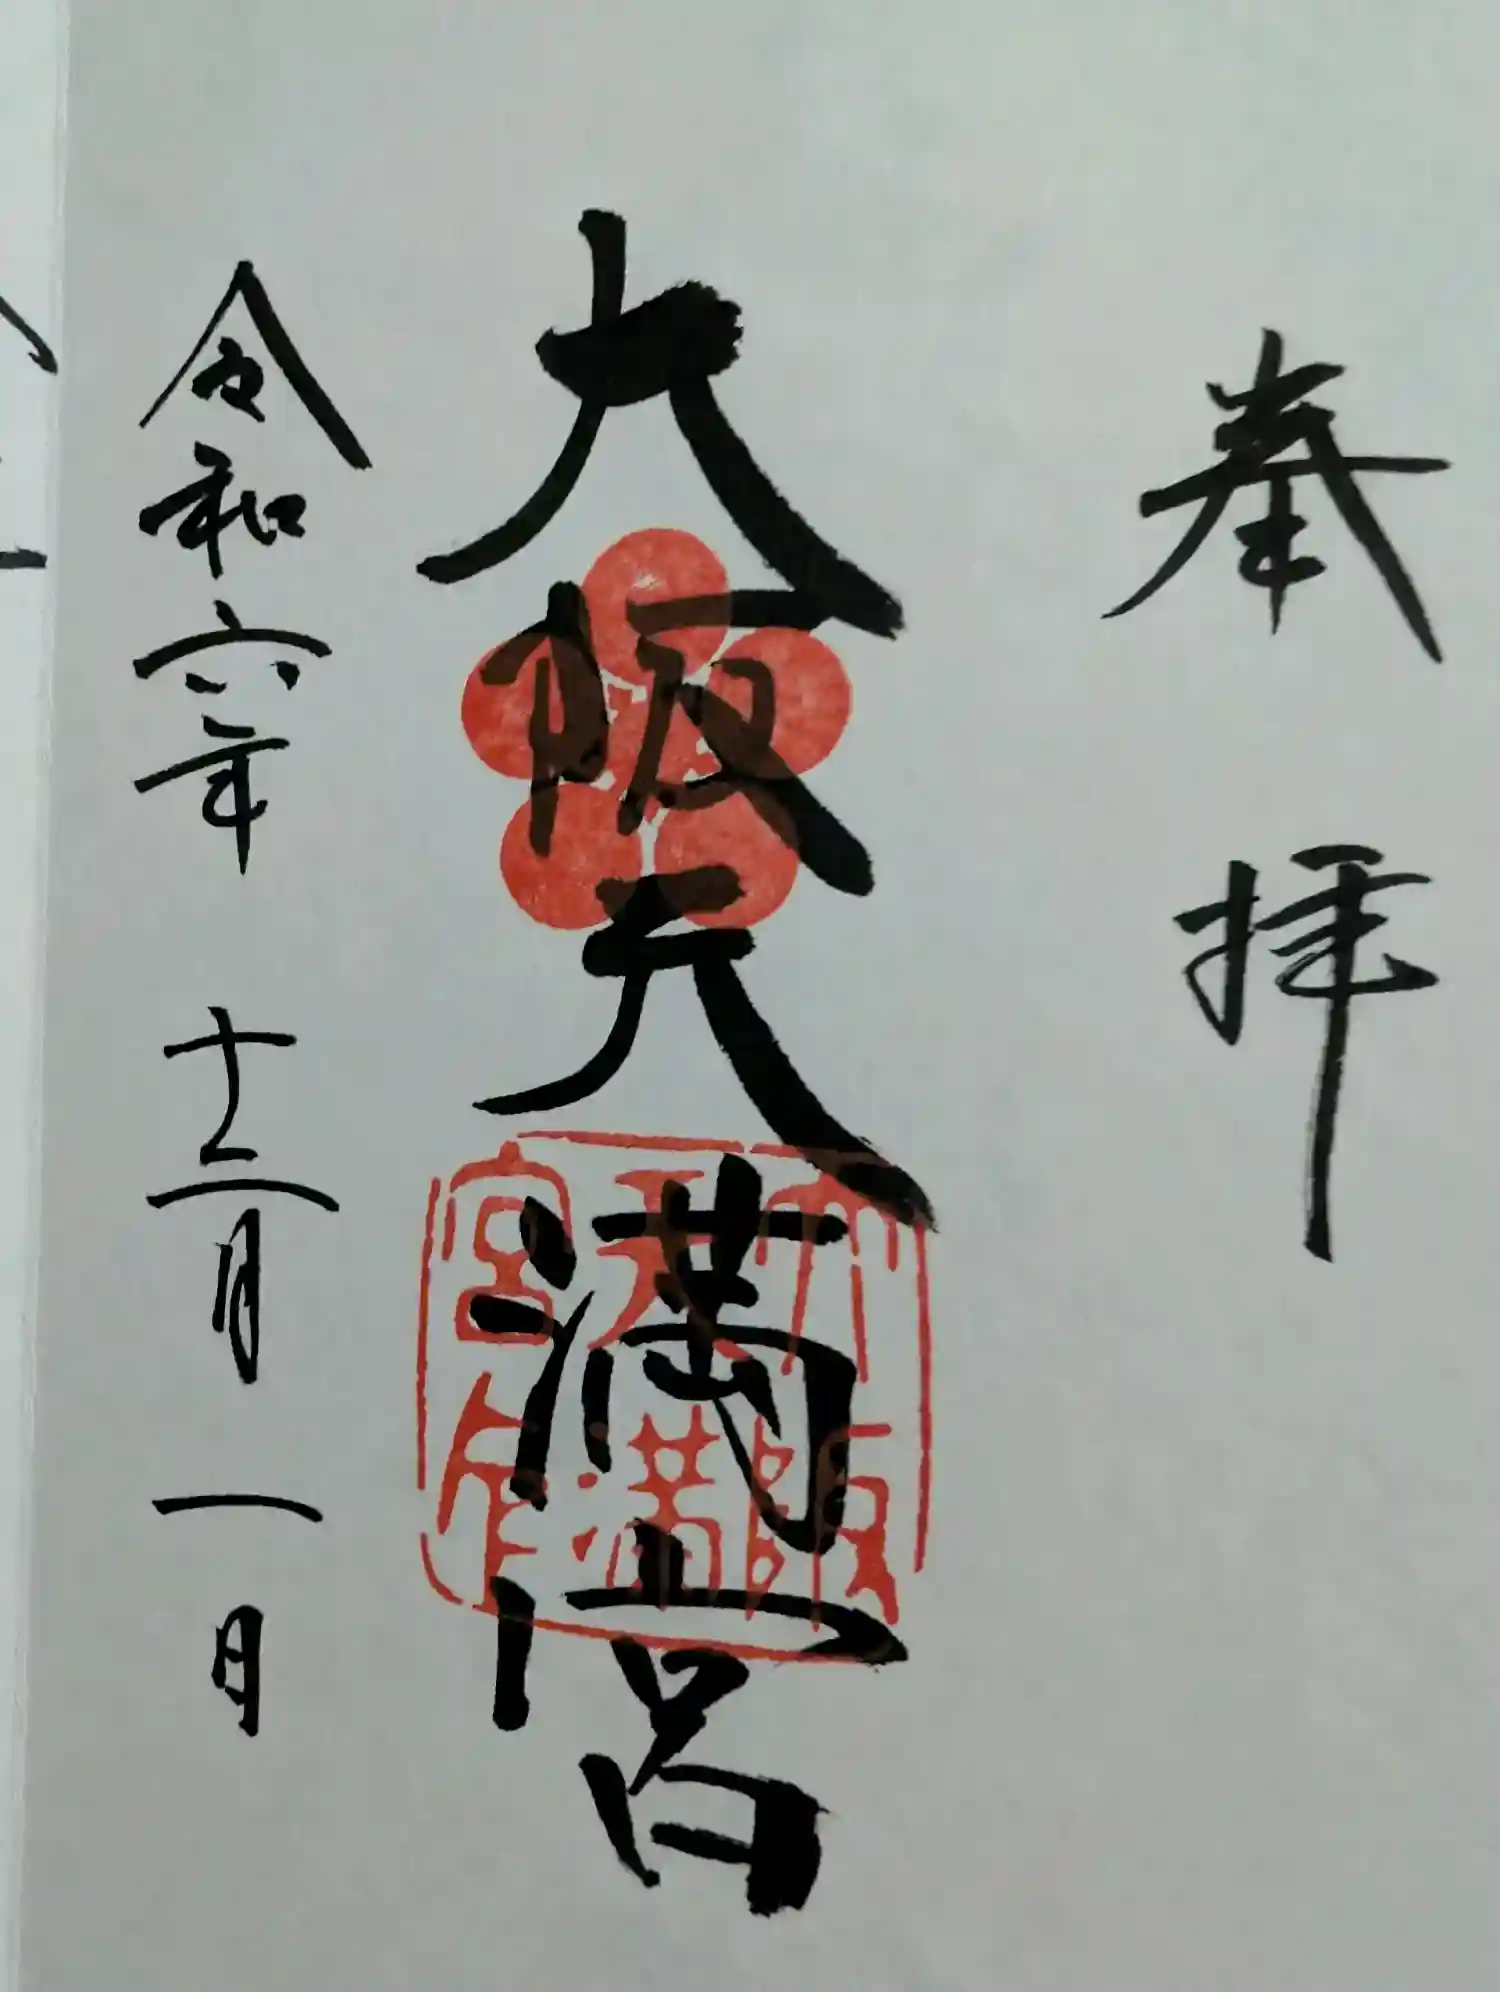 奉拝
大阪天満宮
大阪
天満
宮
令和六年 十二月 一日